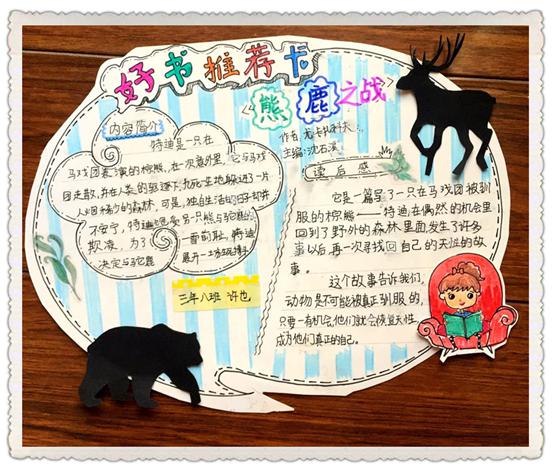 好书推荐卡
《熊鹿之战》
内容简介
特迪是一只在
马戏团表演的棕熊，在一次意外里，它与马戏
团走散，并在人类的驱逐下，九死一生地躲进一片
人烟稀少的森林，可是，独自生活的日子却并
不安宁，特迪饱受另一只熊与驼鹿的
欺凌，为了一雪前耻，特迪
决定与驼鹿展开一场
三年八班 许也
主编：沈石溪
读后感
它是一篇写了一只在马戏团被驯
服的棕熊——特迪，在偶然的机会里
回到了野外的森林里面发生了许多
事以后再一次寻找回自己的天性的故
事。
这个故事告诉我们，
动物是不可能被真正驯服的，
只要一有机会，他们就会恢复天性，
成为他们真正的自己。